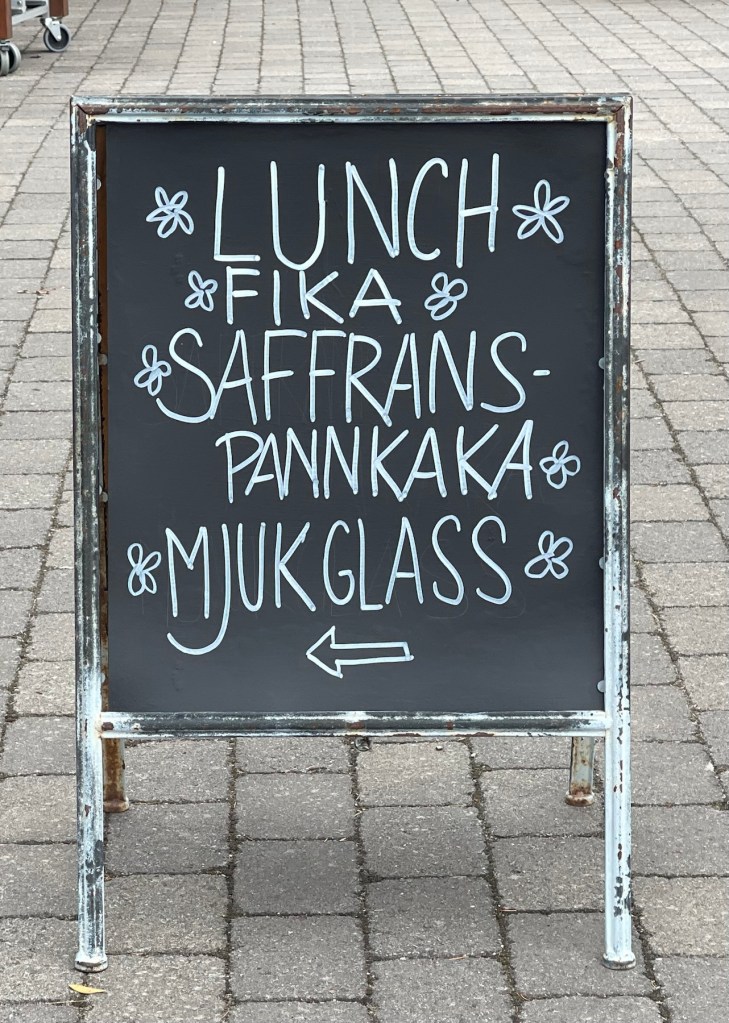 LUNCH
FIKA
SAFFRANS-
PANNKAKA
MJUKGLASS